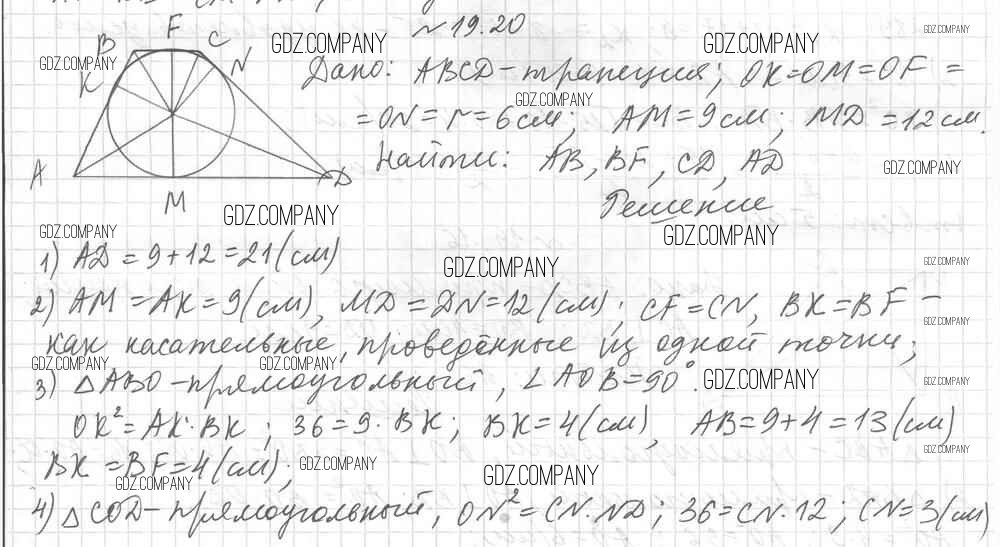 № 19.20
B F C N K A M D
GDZ.COMPANY GDZ.COMPANY
GDZ.COMPANY GDZ.COMPANY
Дано: ABCD - трапеция; OK=OM=OF =
GDZ.COMPANY
= ON = r = 6 см; AM = 9 см; MD = 12 см.
Найти: AB, BF, CD, AD
GDZ.COMPANY
Решение
GDZ.COMPANY
GDZ.COMPANY GDZ.COMPANY
1) AD = 9 + 12 = 21 (см)
GDZ.COMPANY GDZ.COMPANY
2) AM = AK = 9 (см), MD = DN = 12 (см); CF = CN, BK = BF -
GDZ.COMPANY
как касательные, проведённые из одной точки;
GDZ.COMPANY GDZ.COMPANY
3) △ABO - прямоугольный, ∠AOB = 90°.
GDZ.COMPANY GDZ.COMPANY
OK² = AK·BK; 36 = 9·BK; BK = 4 (см), AB = 9 + 4 = 13 (см)
GDZ.COMPANY
BK = BF = 4 (см);
GDZ.COMPANY GDZ.COMPANY
GDZ.COMPANY
4) △COD - прямоугольный, ON² = CN·ND; 36 = CN·12; CN = 3 (см)